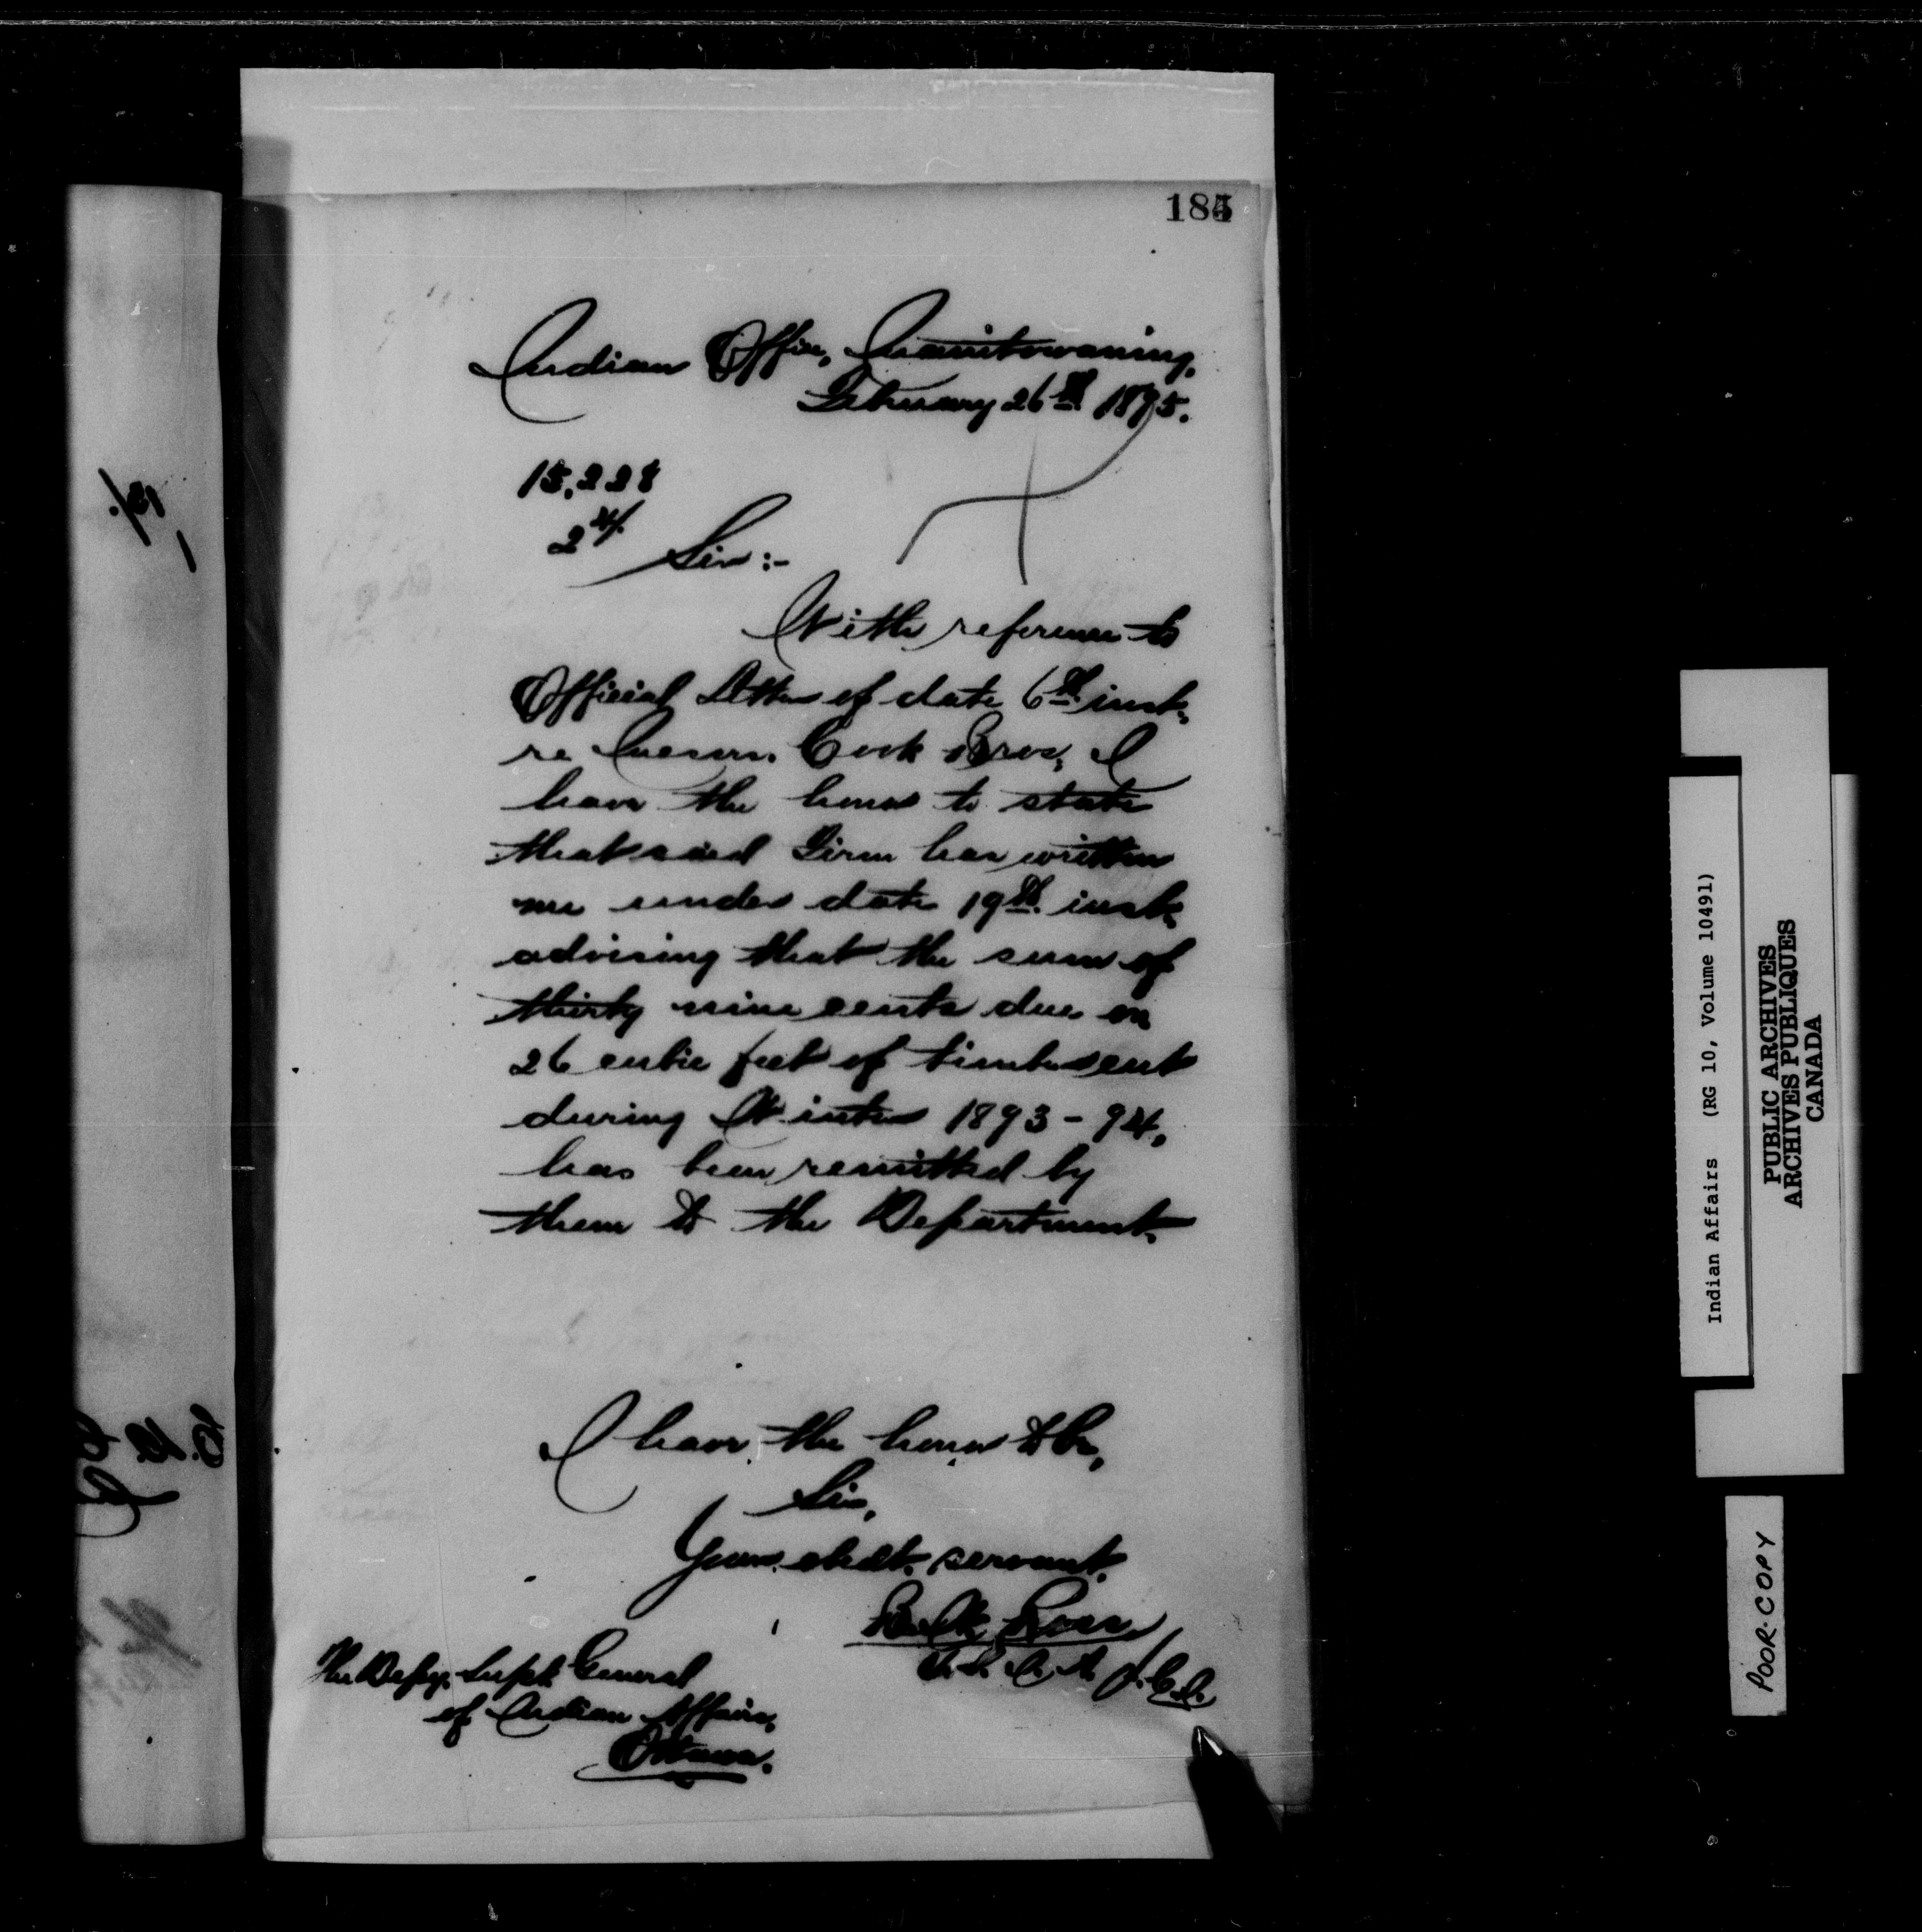 184
Indian Office, Manitowaning,
February 26th 1895.
15,228
2
Sir:-
With reference to
Official Letter of date 6th inst,
re Messrs. Cook Bros, I
have the honor to state
that said Firm has written
me under date 19th inst,
advising that the sum of
thirty nine cents due on
26 cubic feet of timber cut
during Winter 1893-94,
has been remitted by
them to the Department.
I have the honor to be,
Sir,
Your obedt. servant.
Ross
The Depy. Supt. General
of Indian Affairs,
Ottawa.
Indian Affairs (RG 10, Volume 10491)
PUBLIC ARCHIVES
ARCHIVES PUBLIQUES
CANADA
POOR COPY